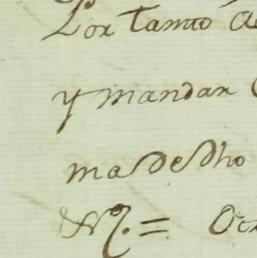 Por tanto
y mandar
ma de dho
N.º = Otr